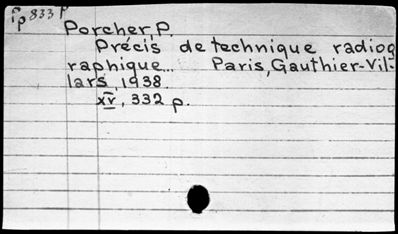 p833 p
Porcher, P.
Précis de technique radiog
raphique... Paris, Gauthier-Vil-
lars, 1938.
xv, 332 p.